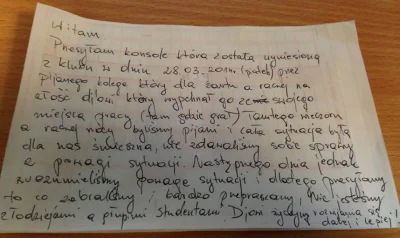 Witam
Przesyłam konsole która została wyniesioną
z klubu w dniu 28.03.2014 (piątek) przez
Pijanego kolegę który dla żartu a raczej na
złość djowi, który wypchnął go ze swojego
miejsca pracy (tam gdzie grał) Tamtego wieczoru
a raczej nocy byliśmy pijani i cała sytuacja była
dla nas śmieszna, nie zdawaliśmy sobie sprawy
z powagi sytuacji. Następnego dnia jednak
zrozumieliśmy powagę sytuacji i dlatego przesyłamy
to co zabraliśmy i bardzo przepraszamy, Nie jesteśmy
złodziejami a głupimi studentami Djowi życzymy rozwijania się
dalej i lepiej!